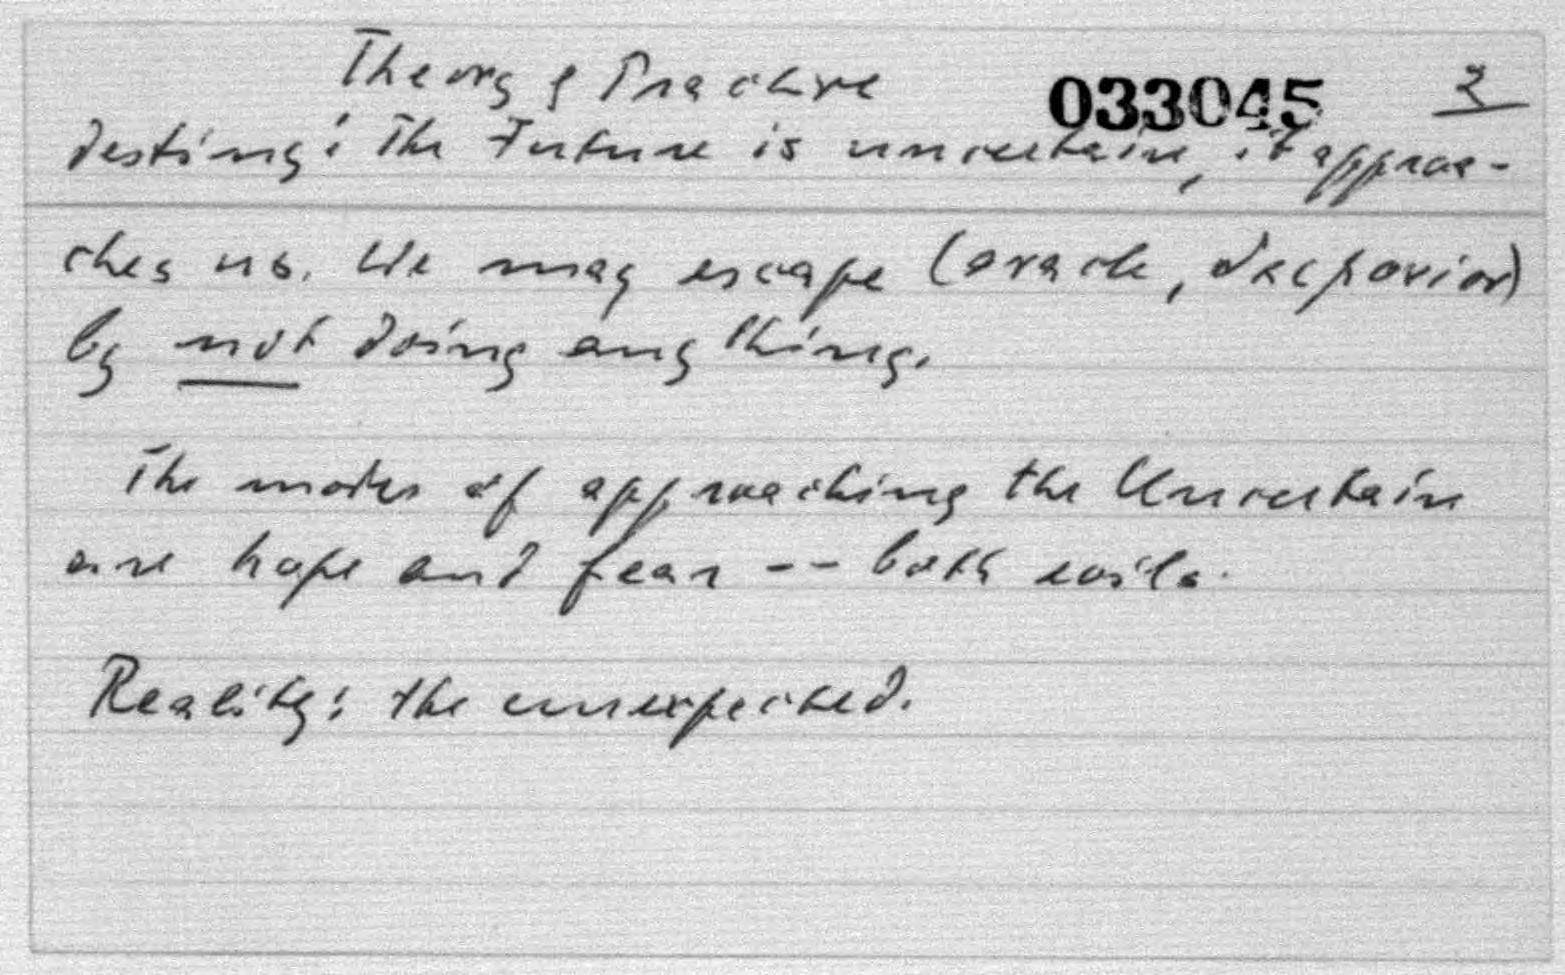 Theory & Practice
033045 2
destiny: The Future is uncertain, it approa-
ches us. We may escape (oracle, daipovior)
by not doing anything.
The modes of approaching the Uncertain
are hope and fear -- both evils.
Reality: the unexpected.